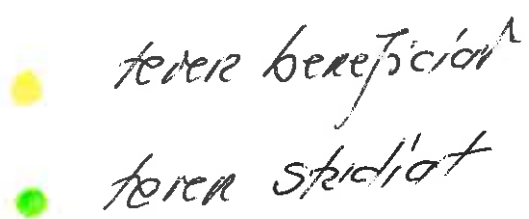 teren beneficiar
teren studiat